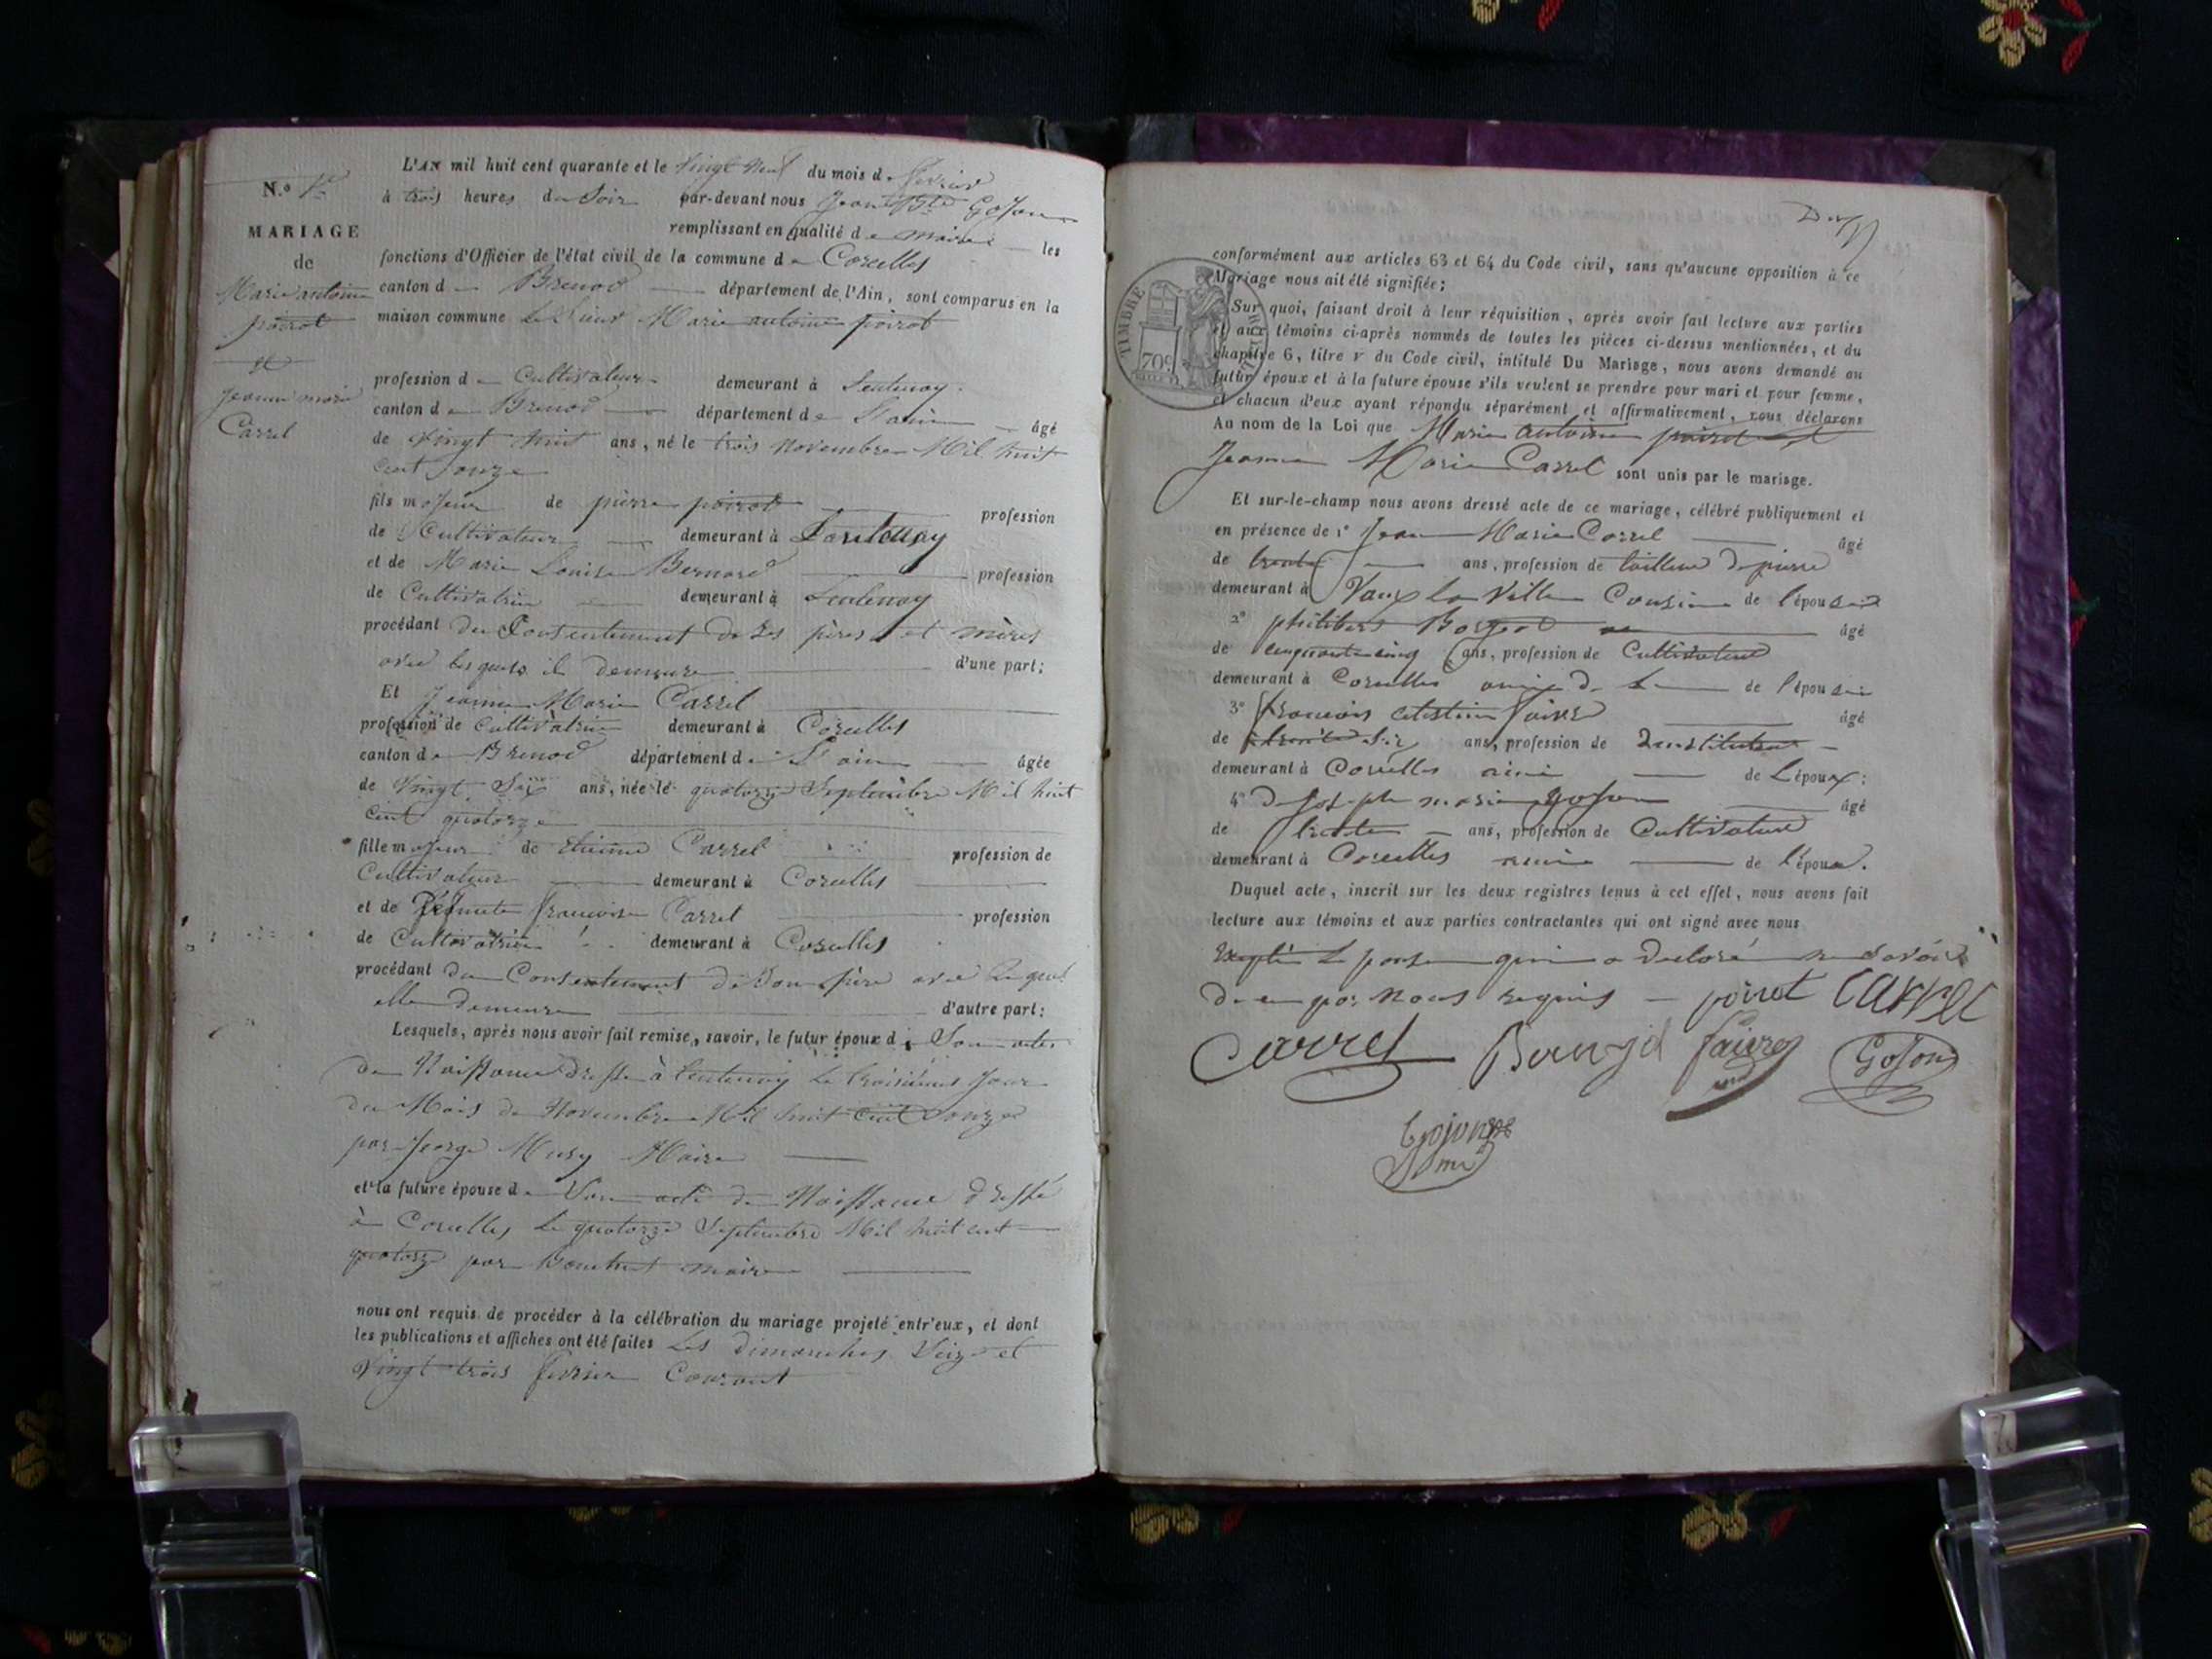 L'AN mil huit cent quarante et le vingt neuf du mois de février
N.o 1er
à trois heures du Soir par-devant nous Jean Bte Gojon
remplissant en qualité de maire les
MARIAGE
de
fonctions d'Officier de l'état civil de la commune de Corcelles
Marie antoine
canton de Brenod département de l'Ain, sont comparus en la
poirot
maison commune Le Sieur Marie antoine poirot
et
profession de Cultivateur demeurant à Lentenay
Jeanne marie
canton de Brenod département de L'ain âgé
Carrel
de vingt huit ans, né le trois novembre Mil huit
cent onze
fils majeur de pierre poirot profession
de Cultivateur demeurant à Lantenay
et de Marie Louise Bernard profession
de Cultivatrice demeurant à Lentenay
procédant du Consentement de ses pères et mères
avec lesquels il demeure d'une part;
Et Jeanne Marie Carrel
profession de cultivatrice demeurant à Corcelles
canton de Brenod département de L'ain âgée
de vingt Six ans, née le quatorze Septembre Mil huit
cent quatorze
fille majeur de etienne Carrel profession de
Cultivateur demeurant à Corcelles
et de françoise Carrel profession
de Cultivatrice demeurant à Corcelles
procédant du Consentement de Son père avec lequel
elle demeure d'autre part:
Lesquels, après nous avoir fait remise, savoir, le futur époux de Son acte
de Naissance dressé à Lentenay Le troisième Jour
du Mois de Novembre Mil huit cent onze
par George Mury Maire
et la future épouse de Son acte de Naissance dressé
à Corcelles Le quatorze Septembre Mil huit cent
quatorze par maire
nous ont requis de procéder à la célébration du mariage projeté entr'eux, et dont
les publications et affiches ont été faites Les dimanches Seize et
vingt trois février Courant
conformément aux articles 63 et 64 du Code civil, sans qu'aucune opposition à ce
Mariage nous ait été signifiée;
TIMBRE ROYAL
70c
Sur quoi, faisant droit à leur réquisition, après avoir fait lecture aux parties
et aux témoins ci-après nommés de toutes les pièces ci-dessus mentionnées, et du
chapitre 6, titre v du Code civil, intitulé Du Mariage, nous avons demandé au
futur époux et à la future épouse s'ils veulent se prendre pour mari et pour femme,
et chacun d'eux ayant répondu séparément et affirmativement, nous déclarons
Au nom de la Loi que Marie antoine poirot et
Jeanne Marie Carrel sont unis par le mariage.
Et sur-le-champ nous avons dressé acte de ce mariage, célébré publiquement et
en présence de 1° Jean Marie Carrel âgé
de trente ans, profession de tailleur de pierre
demeurant à Cousin de l'épouse
2° philibert âgé
de cinquante cinq ans, profession de Cultivateur
demeurant à Corcelles ami de l'épouse
3° françois célestin faivre âgé
de trente six ans, profession de Instituteur
demeurant à Corcelles ami de L'époux;
4° de Joseph marie gojon âgé
de trente ans, profession de Cultivateur
demeurant à Corcelles ami de l'époux.
Duquel acte, inscrit sur les deux registres tenus à cet effet, nous avons fait
lecture aux témoins et aux parties contractantes qui ont signé avec nous
qui a déclaré ne Savoir
de ce par nous requis poirot CARREL
Carrel faivre Gojon
Gojon